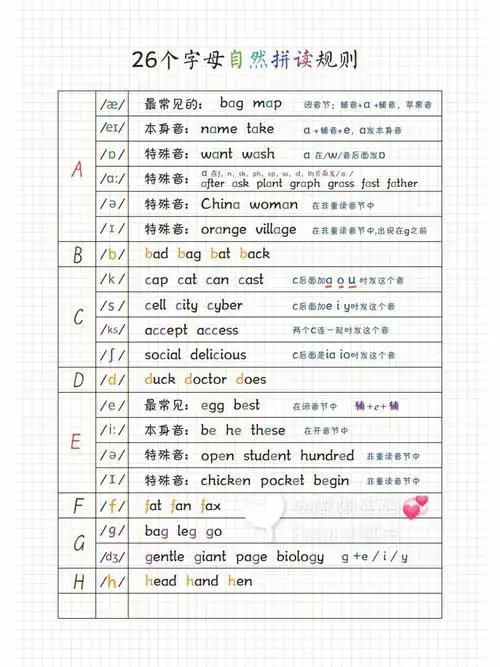 26个字母自然拼读规则
A
/æ/ 最常见的: bag map 闭音节: 辅音+a+辅音, 苹果音
/eɪ/ 本身音: name take a+辅音+e, a发本身音
/ɒ/ 特殊音: want wash a 在/w/音后面发ɒ
/ɑ:/ 特殊音: a 在f, n, sk, ph, sp, ss, st, th前面发/ɑ:/
after ask plant graph grass fast father
/ə/ 特殊音: China woman 在非重读音节中
/ɪ/ 特殊音: orange village 在非重读音节中,出现在g之前
B /b/ bad bag bat back
C
/k/ cap cat can cast c后面加a o u时发这个音
/s/ cell city cyber c后面加e i y时发这个音
/ks/ accept access 两个c连一起时发这个音
/ʃ/ social delicious c后面是ia io时发这个音
D /d/ duck doctor does
E
/e/ 最常见: egg best 在闭音节中 辅+e+辅
/i:/ 本身音: be he these 在开音节中
/ə/ 特殊音: open student hundred 非重读音节中
/ɪ/ 特殊音: chicken pocket begin 非重读音节中
F /f/ fat fan fax
G
/g/ bag leg go
/dʒ/ gentle giant page biology g+e/i/y
H /h/ head hand hen